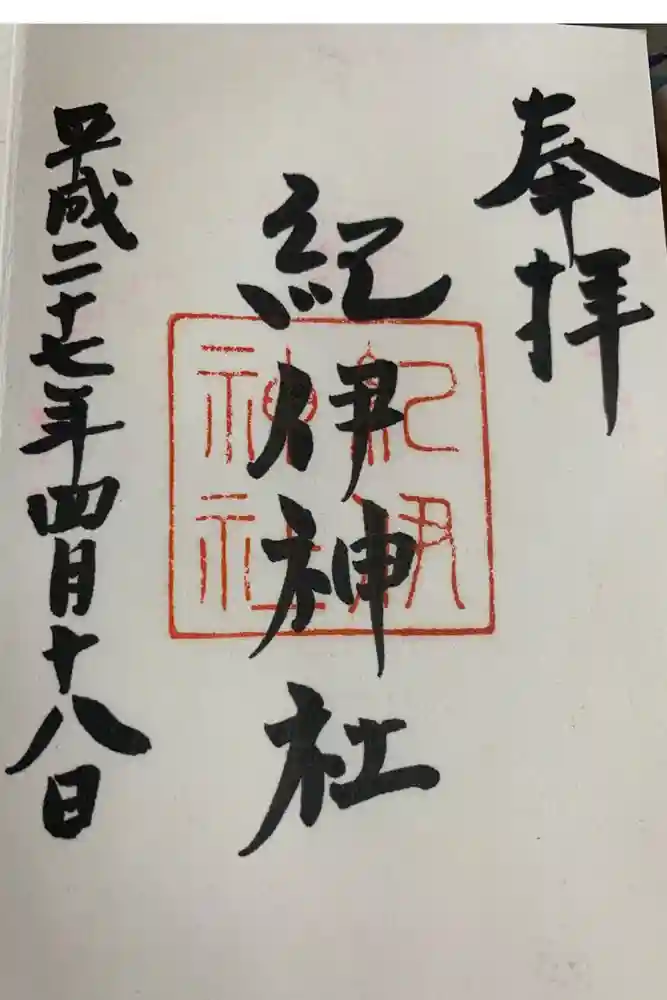 奉拝
紀伊神社
紀伊
神社
平成二十七年四月十八日